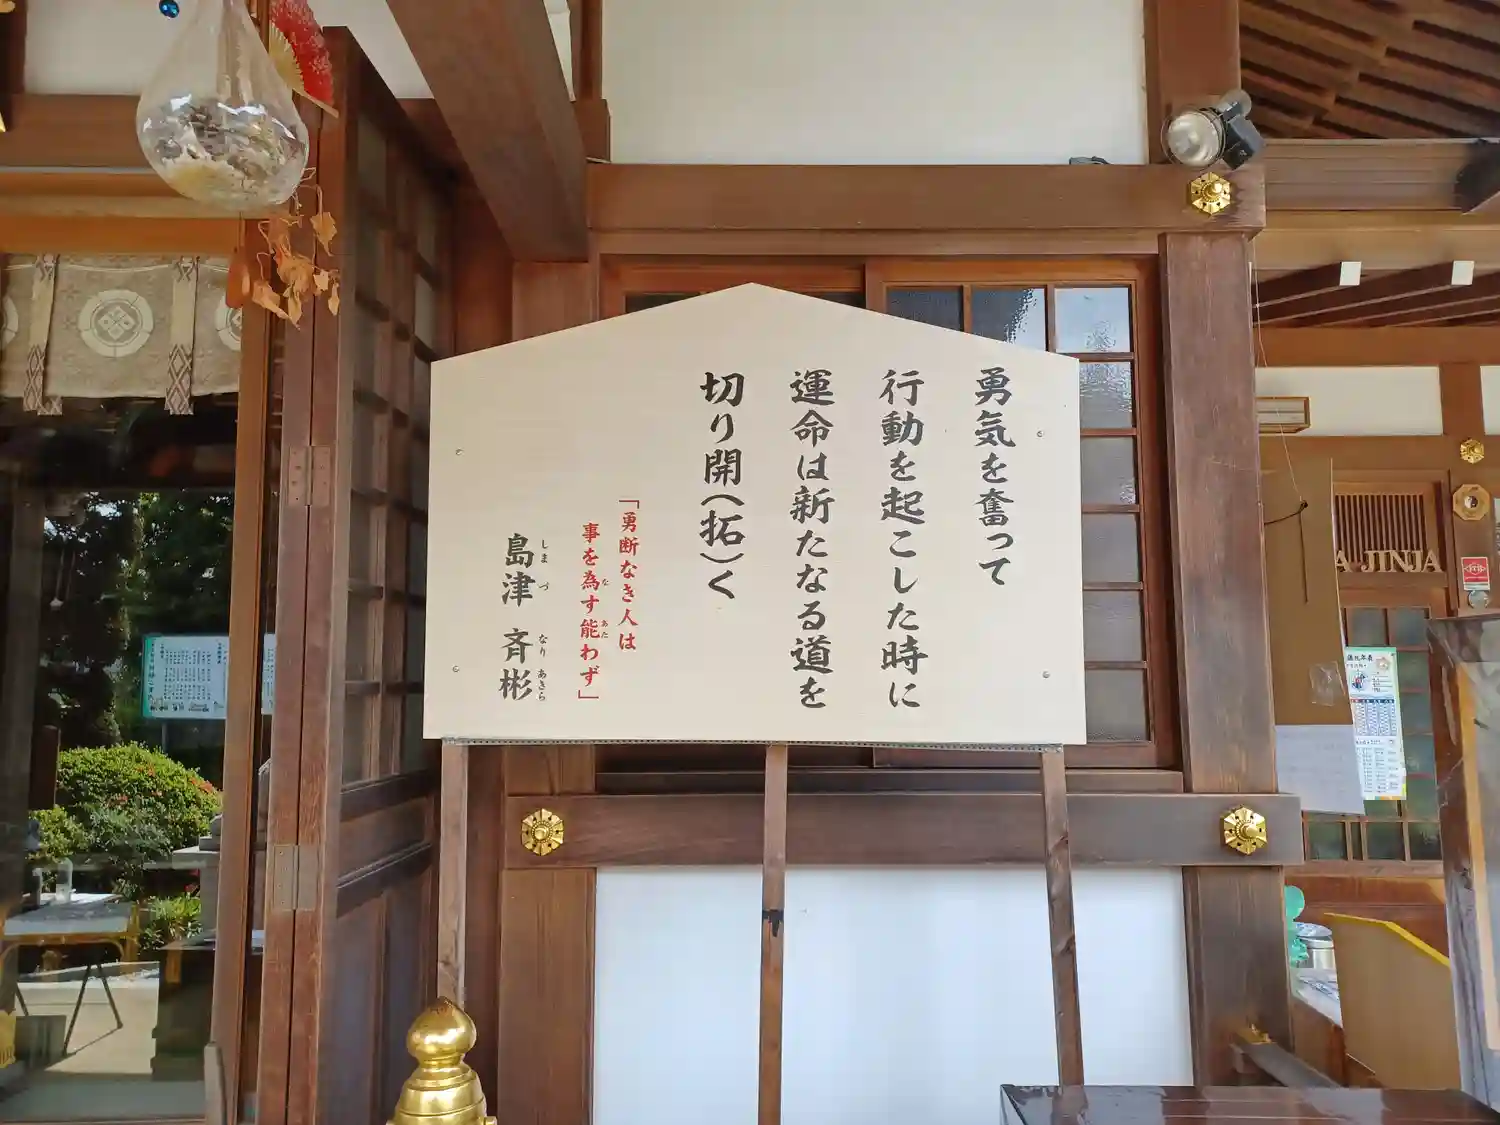 勇気を奮って
行動を起こした時に
運命は新たなる道を
切り開(拓)く
「勇断なき人は
事を為す能わず」
な
あた
島津 斉彬
しまづ
なりあきら
A JINJA